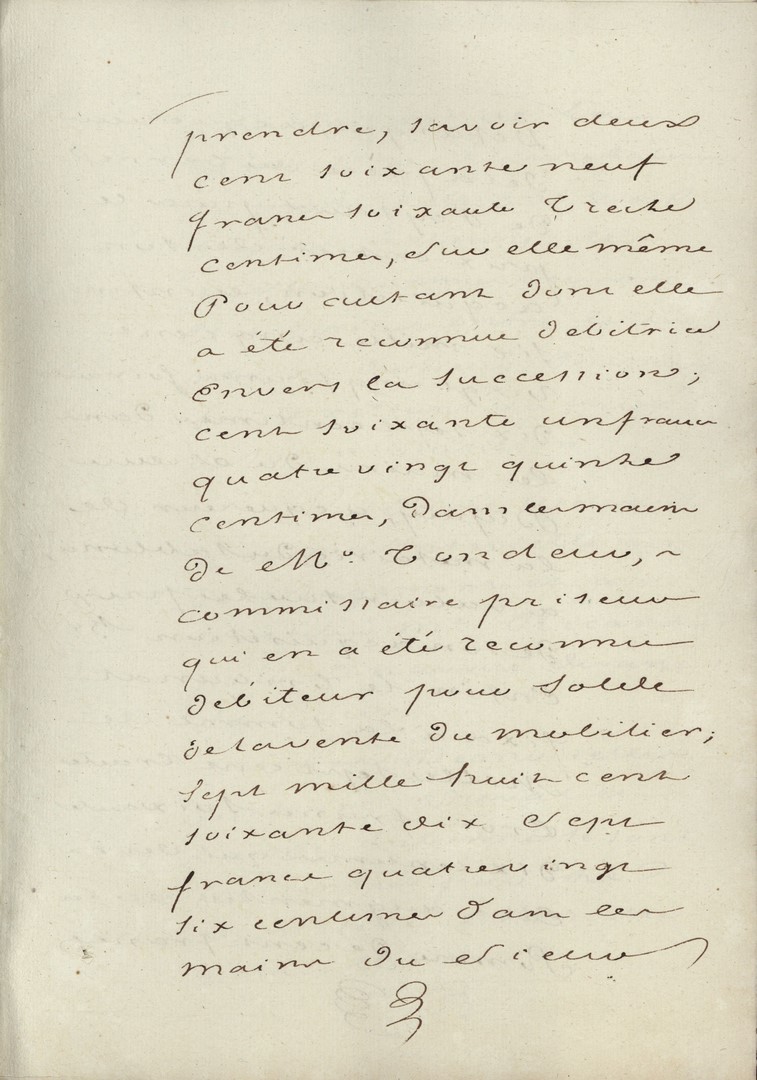 prendre, savoir deux
cent soixante neuf
francs soixante treize
centimes, sur elle même
Pour autant dont elle
a été reconnue débitrice
envers la succession;
cent soixante un francs
quatre vingt quinze
centimes, dans les mains
De Me. Tondeur, ~
commissaire priseur
qui en a été reconnu
débiteur pour solde
de la vente du mobilier;
sept mille huit cent
soixante dix sept
francs quatre vingt
six centimes dans les
mains du sieur